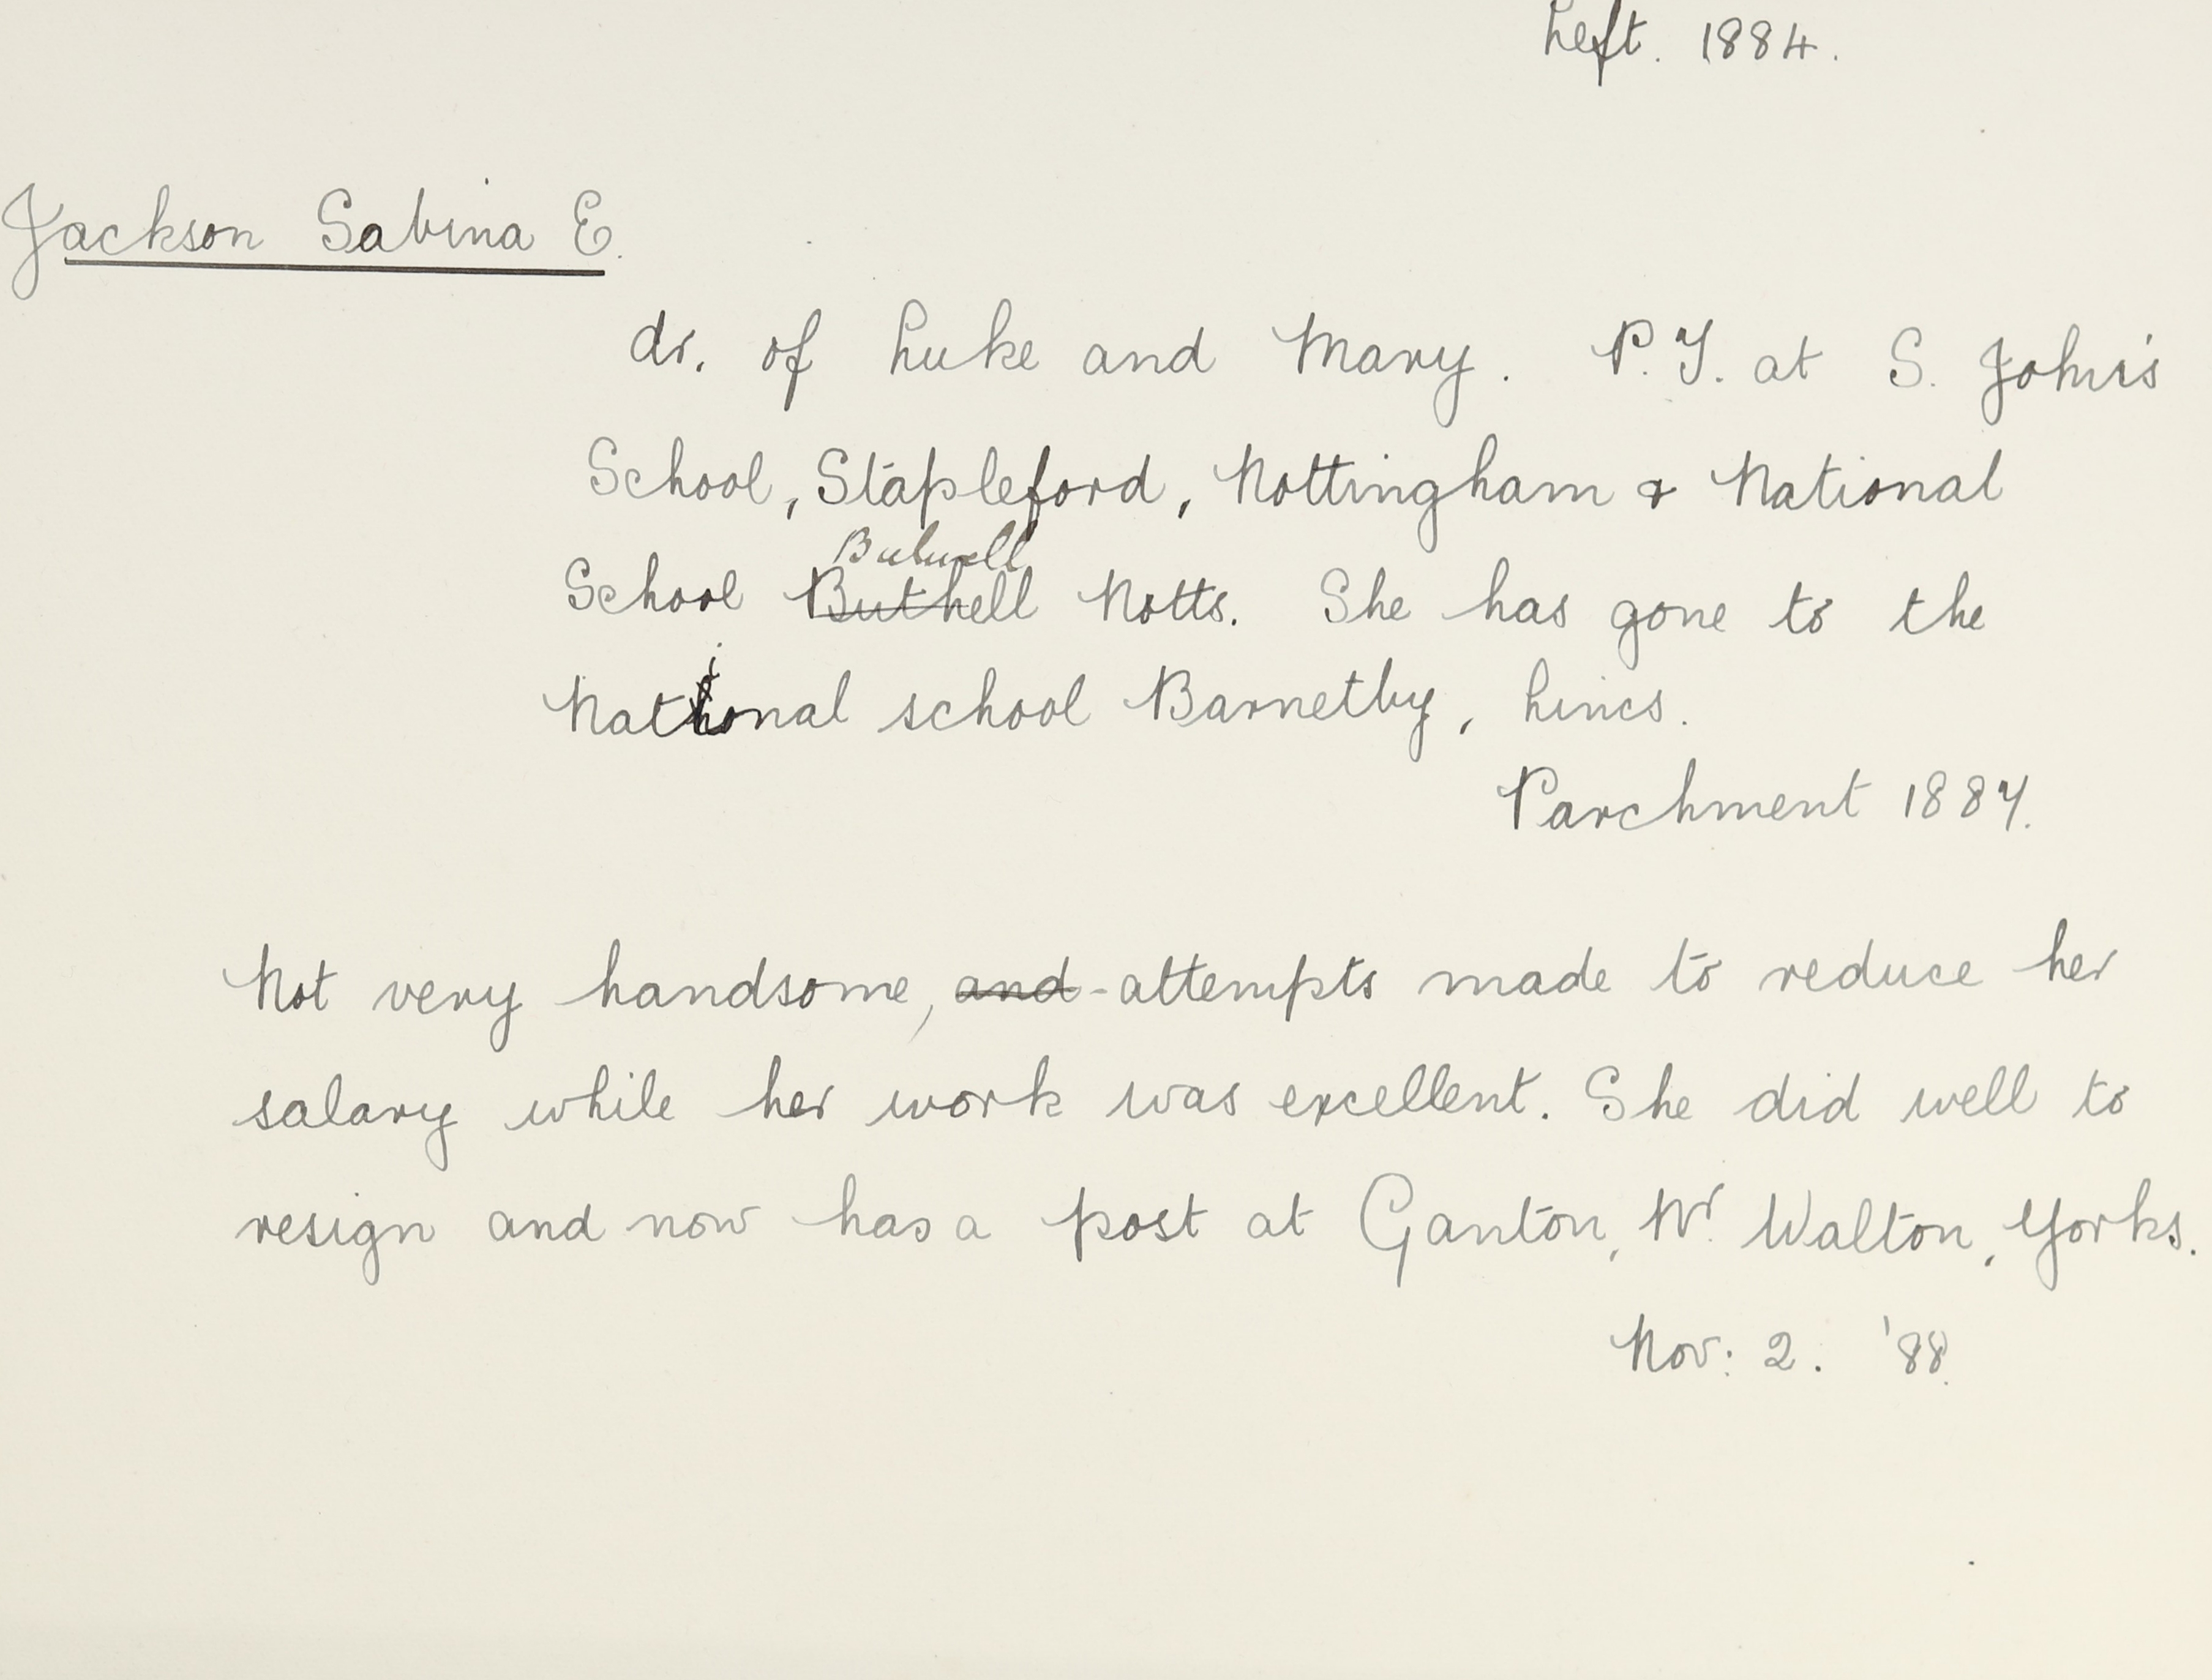 Left. 1884.
Jackson Sabina E.
dr. of Luke and Mary. P.T. at S. John's
School, Stapleford, Nottingham & National
Bulwell
School Buthell Notts. She has gone to the
National school Barnetby, Lincs.
Parchment 1887.
Not very handsome, and attempts made to reduce her
salary while her work was excellent. She did well to
resign and now has a post at Ganton, Nr. Walton, Yorks.
Nov: 2. '88.